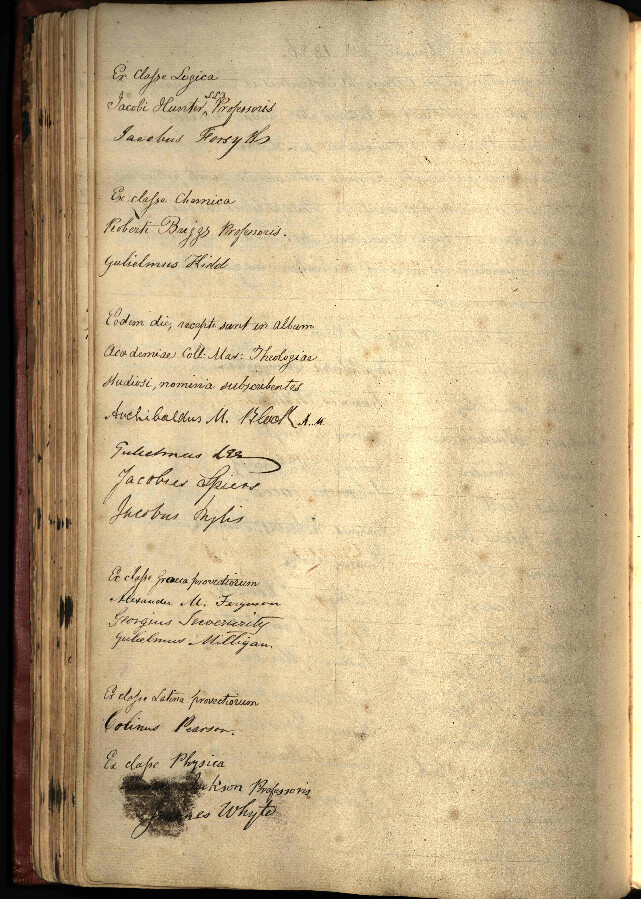 Ex Classe Logica
Jacobi Hunter, Professoris
Jacobus Forsyth
Ex classe Chemica
Roberti Briggs Professoris.
Gulielmus Kidd
Eodem die, recepti sunt in album
Academiae Coll: Mar: Theologiae
studiosi, nomina subscribentes
Archibaldus M. Black A.M.
Gulielmus Lee
Jacobus Spiers
Jacobus
Ex classe Graeca provectiorum
Alexander M. Ferguson
Georgius Inverarity
Gulielmus Milligan.
Ex classe Latina provectiorum
Colinus Pearson.
Ex classe Physica
Jackson Professoris
Joannes Whyte